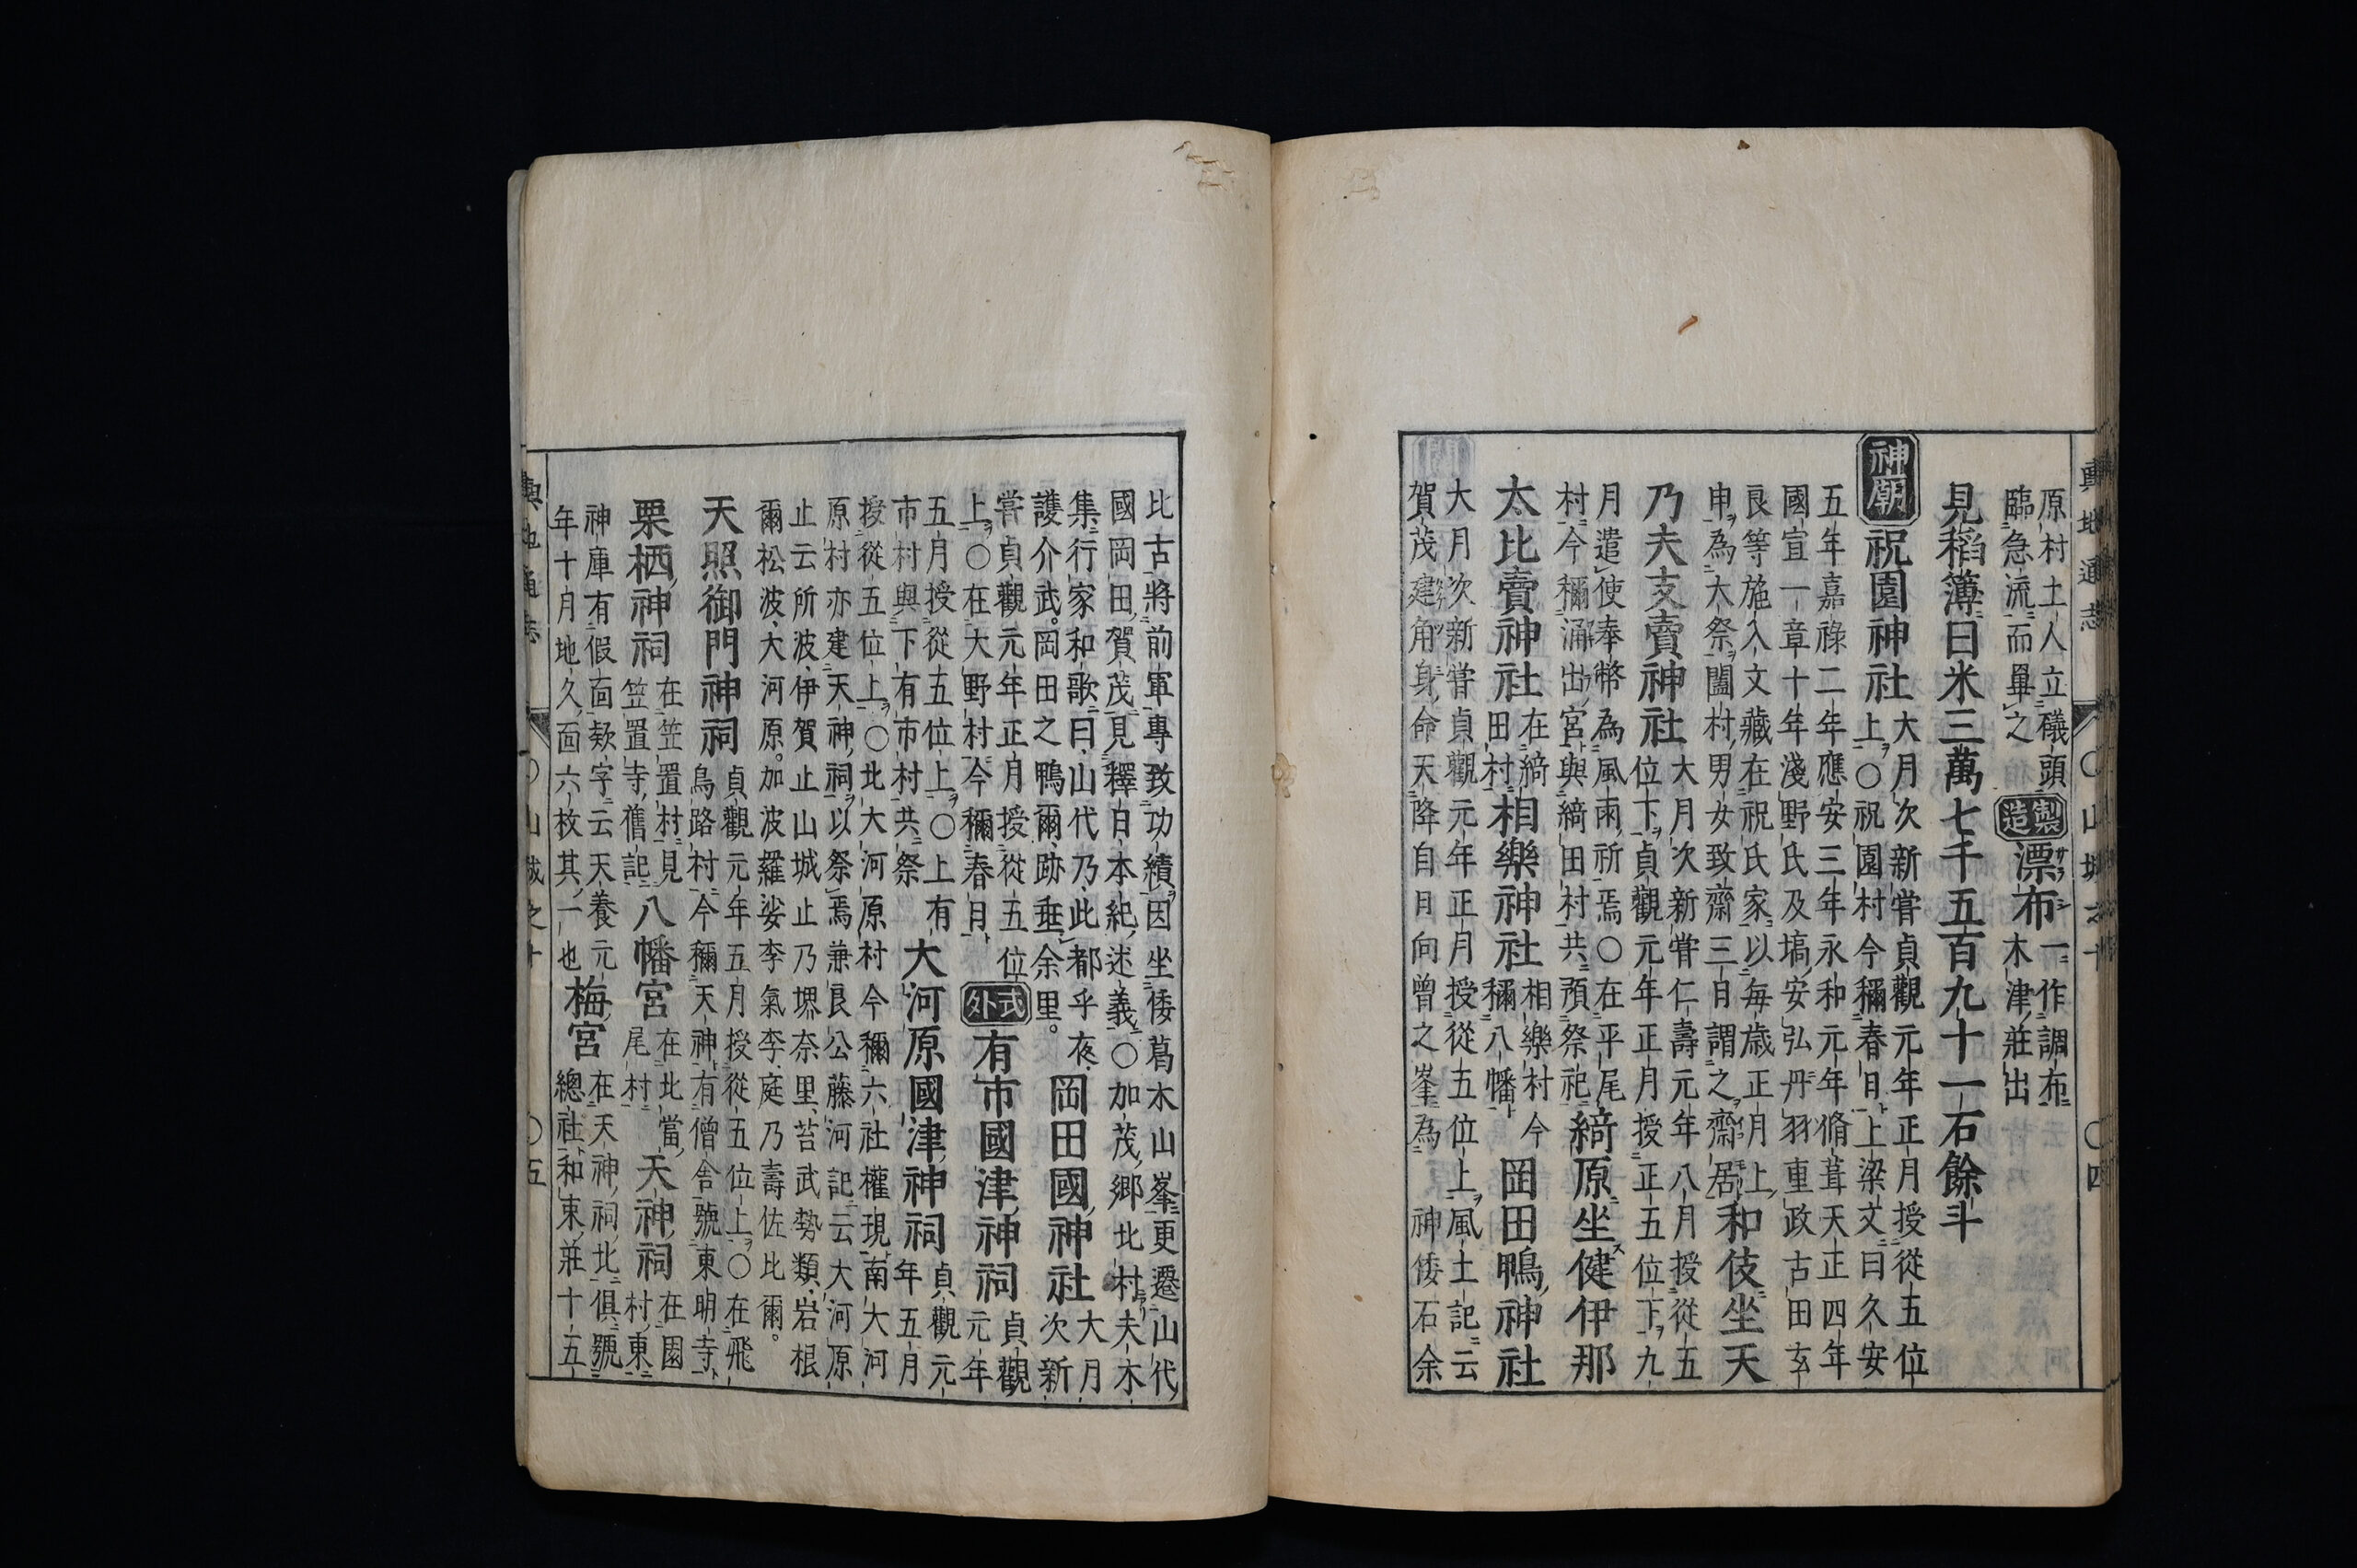 輿地通志 〇山城之十 〇四
原村土人立磯頭
臨急流而畢之
製造
漂布
一作調布
木津莊出
見稻簿曰米三萬七千五百九十一石餘斗
神廟
祝園神社
大月次新嘗貞觀元年正月授從五位
上〇祝園村今稱春日上梁文曰久安
五年嘉祿二年應安三年永和元年脩葺天正四年
國宣一章十年淺野氏及塙安弘丹羽重政古田玄
良等施入文藏在祝氏家以每歲正月上
申為大祭闔村男女致齋三日謂之齋居
和伎坐天
乃夫支賣神社
大月次新嘗仁壽元年八月授從五
位下貞觀元年正月授正五位下九
月遣使奉幣為風雨祈焉〇在平尾
村今稱涌出宮與綺田村共預祭祀
綺原坐健伊那
太比賣神社
在綺
田村
相樂神社
相樂村今
稱八幡
岡田鴨神社
大月次新嘗貞觀元年正月授從五位上風土記云
賀茂建角身命天降自日向曾之峯為神倭石余
比古將前軍專致功績因坐倭葛木山峯更遷山代
國岡田賀茂見釋日本紀述義〇加茂鄉北村夫木
集行家和歌曰山代乃此都乎夜
護介武岡田之鴨爾跡垂余里
岡田國神社
大月
次新
嘗貞觀元年正月授從五位
上〇在大野村今稱春日
式外
有市國津神祠
貞觀
元年
五月授從五位上〇上有
市村與下有市村共祭
大河原國津神祠
貞觀元
年五月
授從五位上〇北大河原村今稱六社權現南大河
原村亦建天神祠以祭焉兼良公藤河記云大河原
止云所波伊賀止山城止乃堺奈里苔武勢類岩根
爾松波大河原加波羅娑李氣李庭乃壽佐比爾
天照御門神祠
貞觀元年五月授從五位上〇在飛
鳥路村今稱天神有僧舍號東明寺
栗栖神祠
在笠置村見
笠置寺舊記
八幡宮
在北當
尾村
天神祠
在園
村東
神庫有假面欵字云天養元
年十月地久面六枚其一也
梅宮
在天神祠北俱號
總社和東莊十五
輿地通志 〇山城之十 〇五